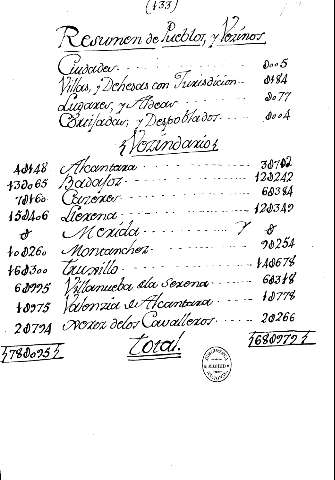 (133)
Resumen de Pueblos, y Vezinos.
Ciudades 0005
Villas, y Dehesas con Jurisdicion 0184
Lugares, y Aldeas 0077
Cotos, y Despoblados 0004
Vezindario
Alcantara
130065 Badajoz 120242
Cazeres 60384
150406 Llerena 120349
0 Merida y 0
100260 Montanchez 90254
160300 Truxillo 140678
60995 Villanueba de la Serena 60318
10975 Valenzia de Alcantara 10778
20794 Xerez de los Cavalleros 20266
780095 Total. 680979